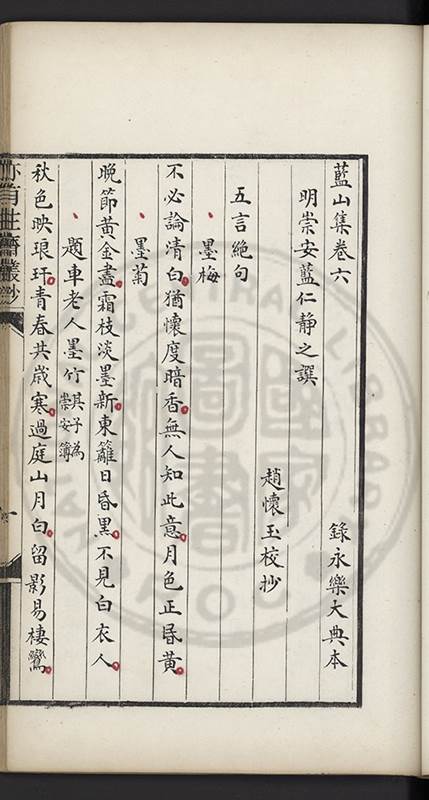 藍山集卷六 錄永樂大典本
明崇安藍仁靜之譔
趙懷玉校抄
五言絕句
墨梅
不必論清白猶懷度暗香無人知此意月色正昏黃
墨菊
晚節黃金盡霜枝淡墨新東籬日昏黑不見白衣人
題車老人墨竹其子為崇安簿
秋色映琅玕青春共歲寒過庭山月白留影易棲鸞
亦有生齋叢鈔
CENTRAL
國家圖書